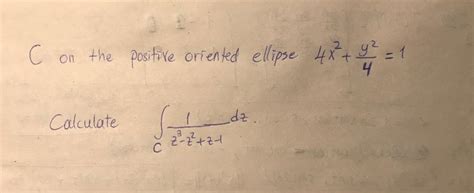 C on the positive oriented ellipse 4x² + y²/4 = 1
Calculate ∫_C 1/(z³-z²+z-1) dz.